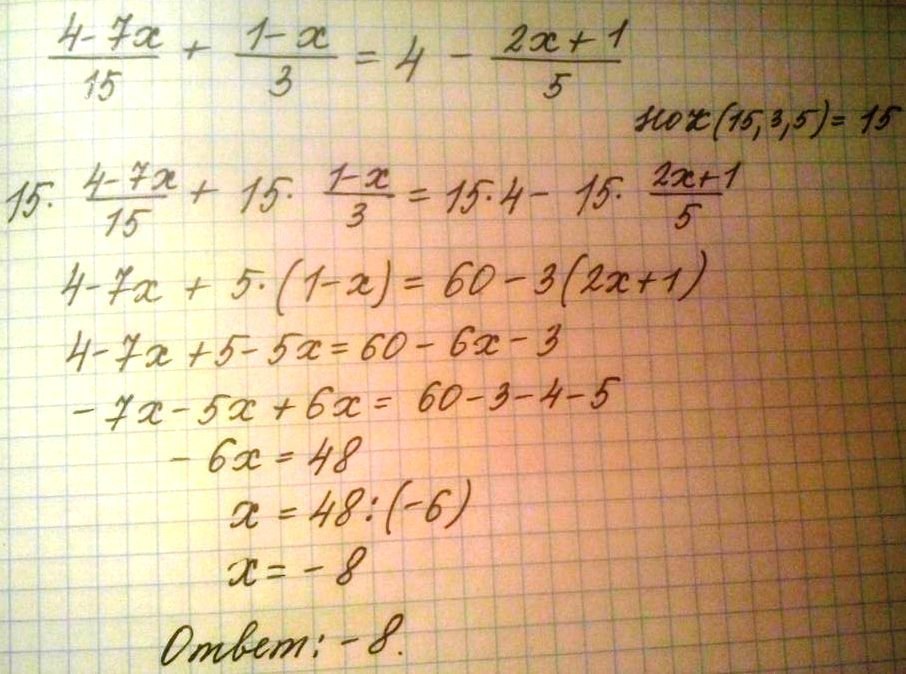 (4-7x)/15 + (1-x)/3 = 4 - (2x+1)/5
НОК(15,3,5)=15
15· (4-7x)/15 + 15· (1-x)/3 = 15·4 - 15· (2x+1)/5
4-7x + 5·(1-x) = 60-3(2x+1)
4-7x+5-5x=60-6x-3
-7x-5x+6x= 60-3-4-5
-6x=48
x=48:(-6)
x=-8
Ответ: -8.